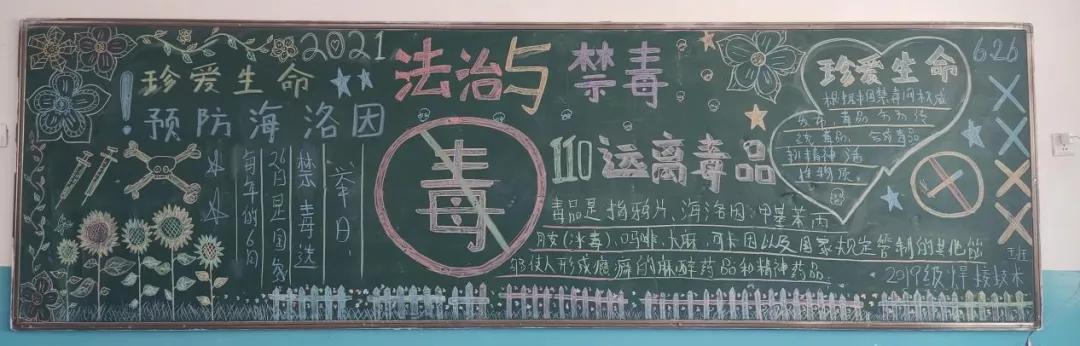 2021
珍爱生命
预防海洛因
法治与禁毒
毒
110远离毒品
毒品是指鸦片、海洛因、甲基苯丙
胺(冰毒)、吗啡、大麻、可卡因以及国家规定管制的其他能
够使人形成瘾癖的麻醉药品和精神药品。
举日
禁毒选
26日是国家
每年的6月
珍爱生命
根据中国禁毒网权威
发布,毒品分为传
统毒品、合成毒品
新精神活
性物质。
6.26
2019级焊接技术